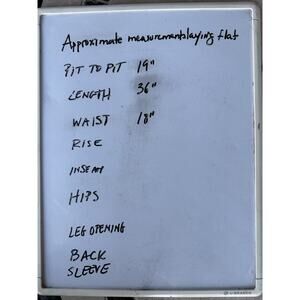 Approximate measurements laying flat
PIT TO PIT 19"
LENGTH 36"
WAIST 18"
RISE
INSEAM
HIPS
LEG OPENING
BACK
SLEEVE